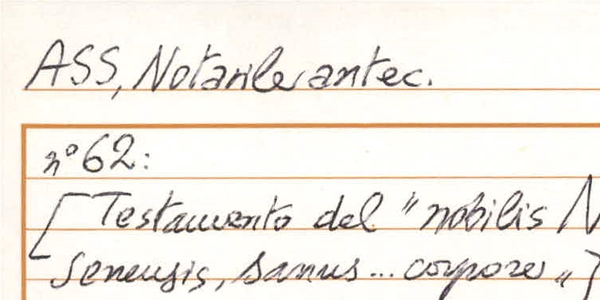 ASS, Notarile antec.
n° 62:
[Testamento del "nobilis N
senensis, sanus... corpore"]